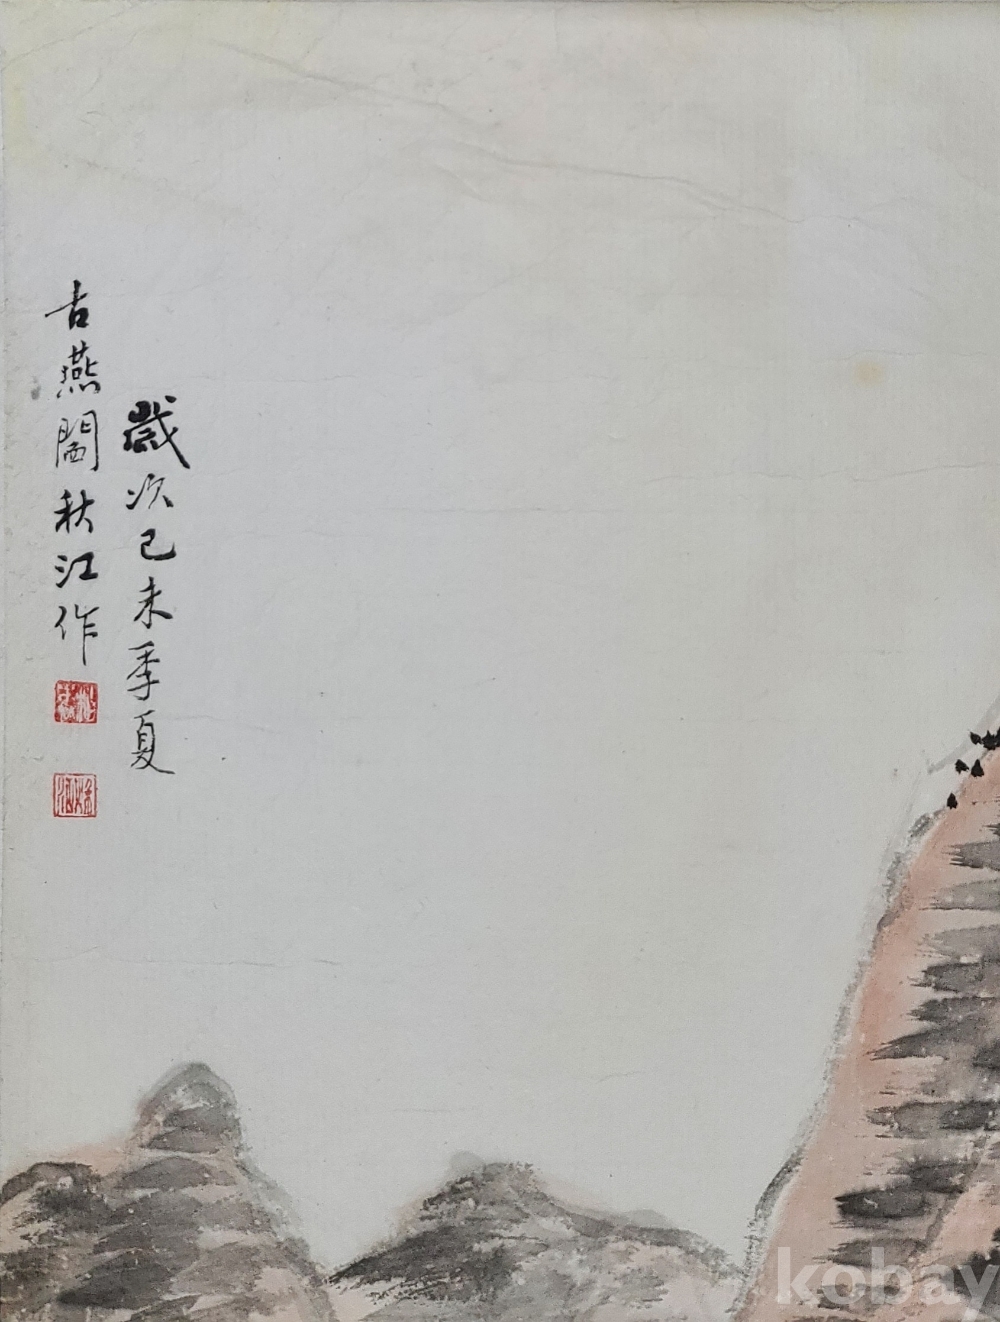 歲次己未季夏
古燕閻秋江作
kobay